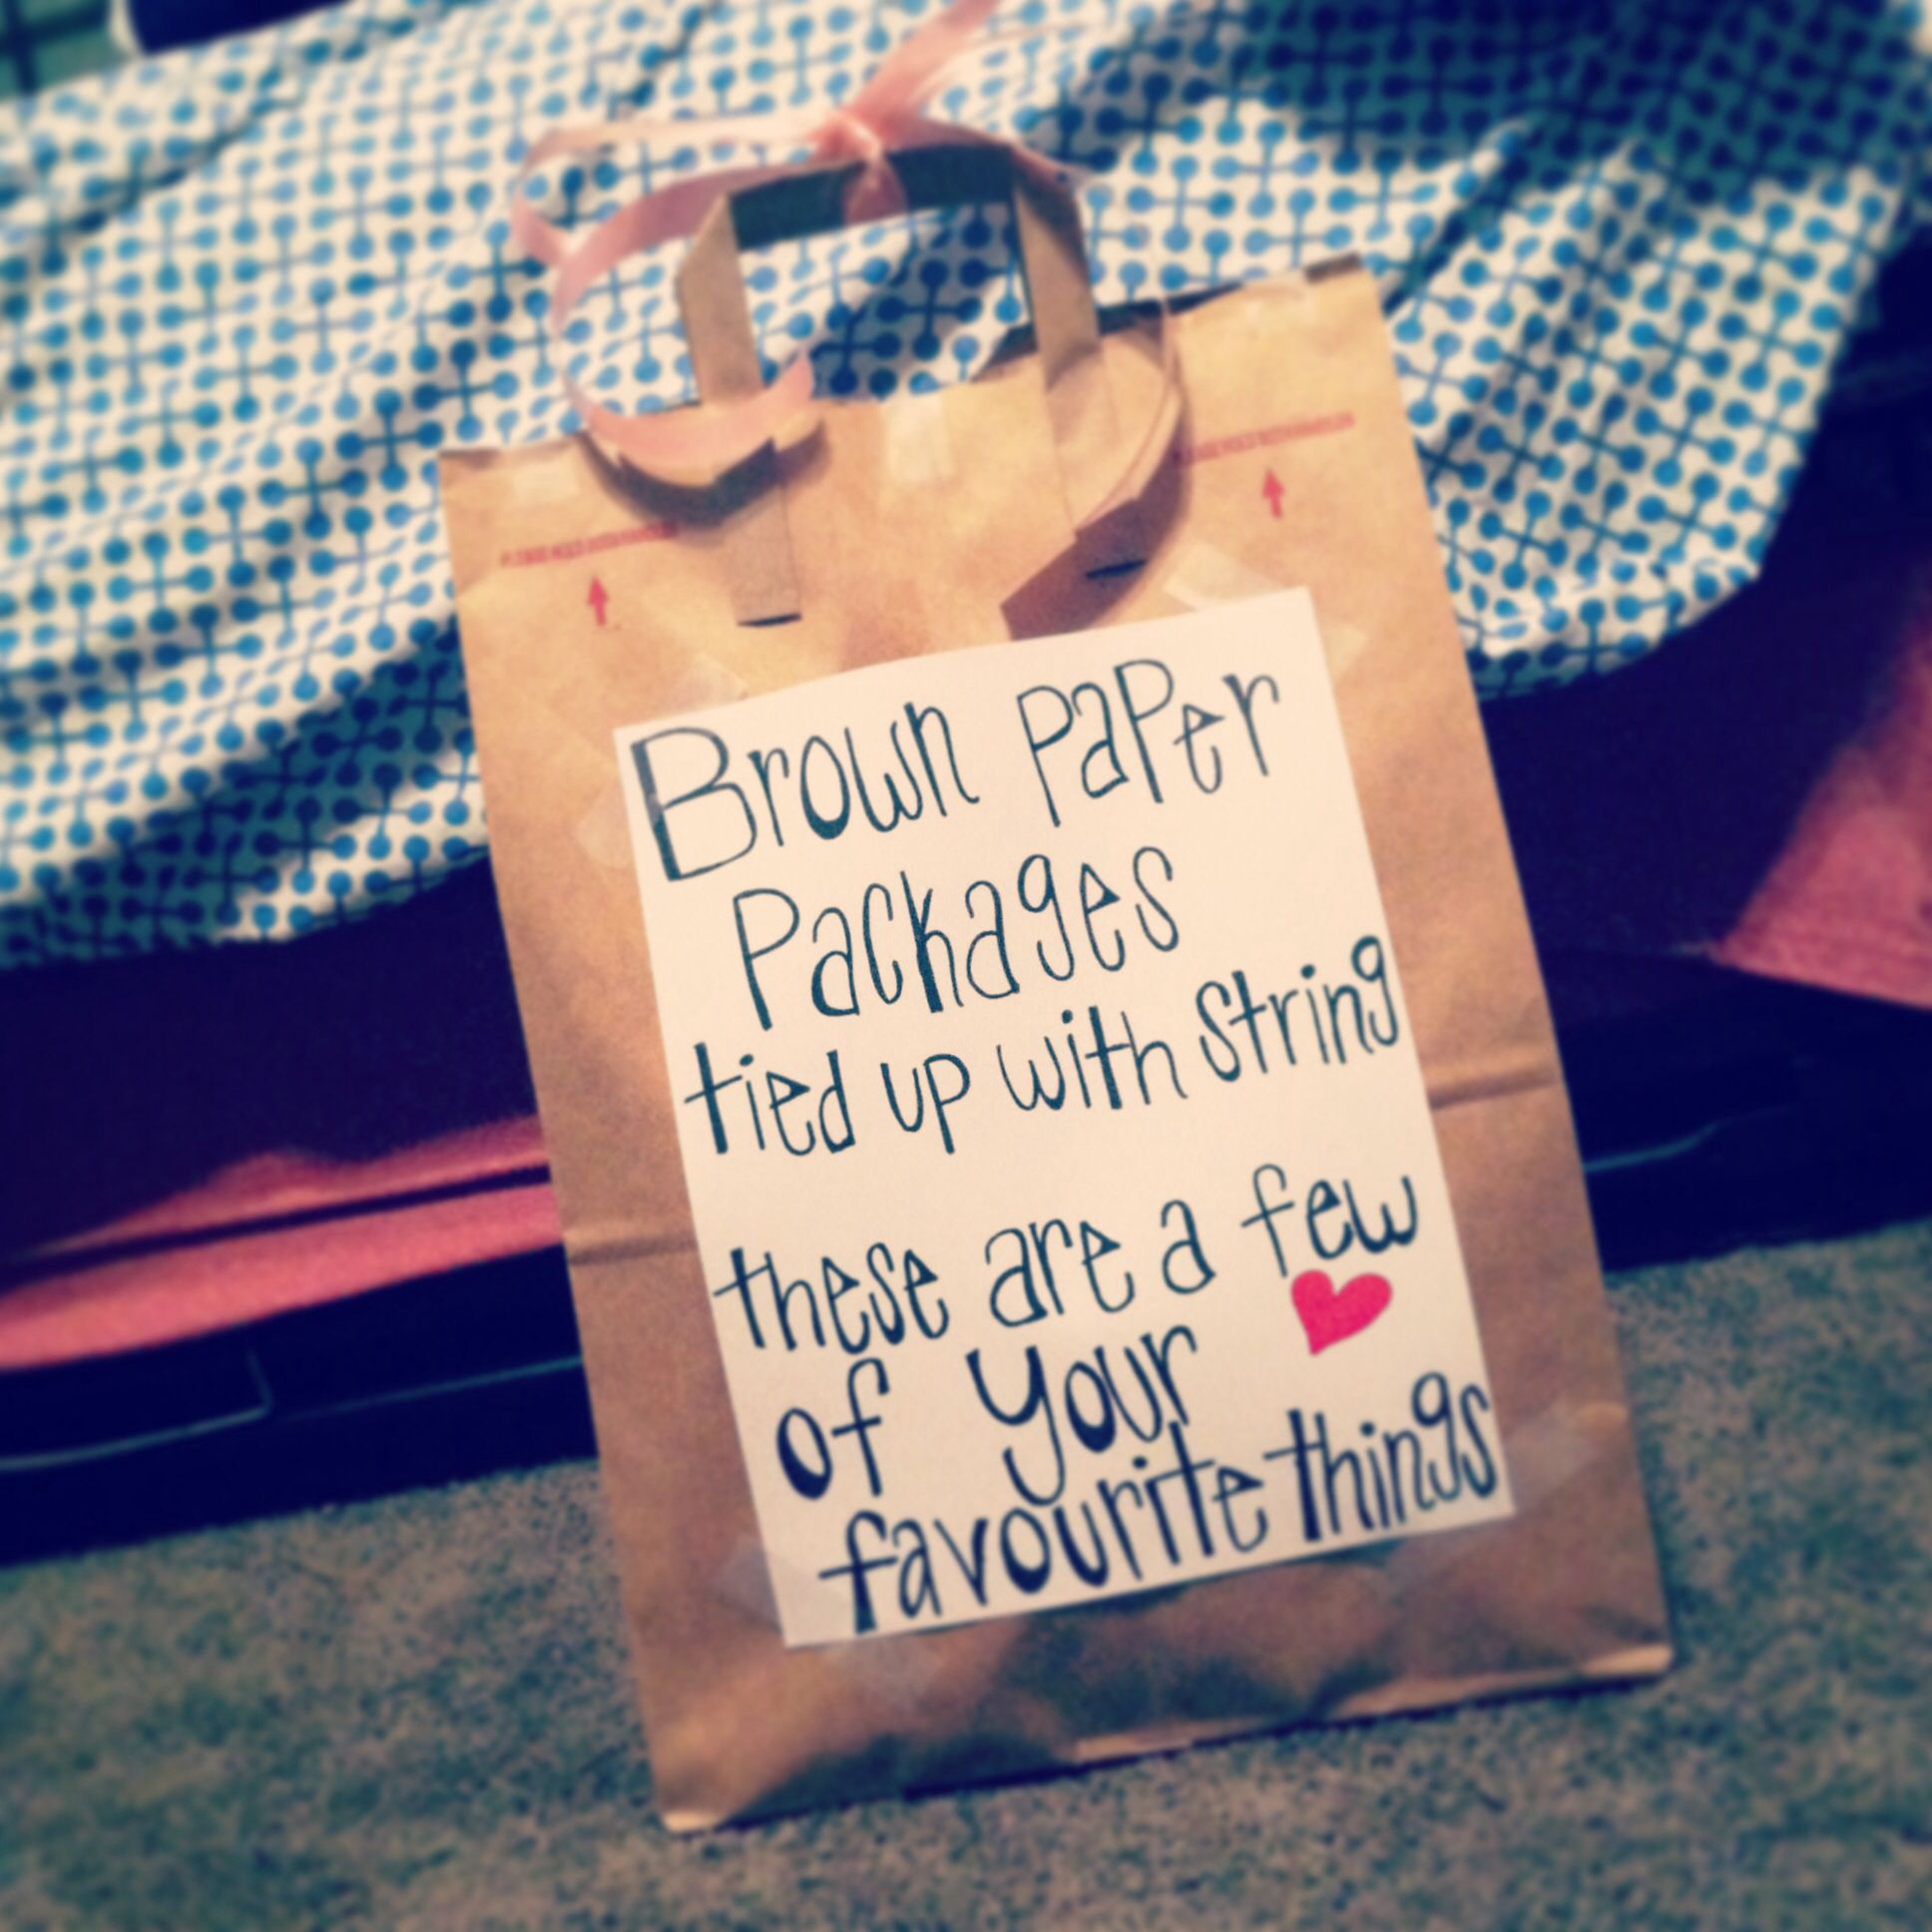 Brown paper
Packages
tied up with string
these are a few
of your
favourite things